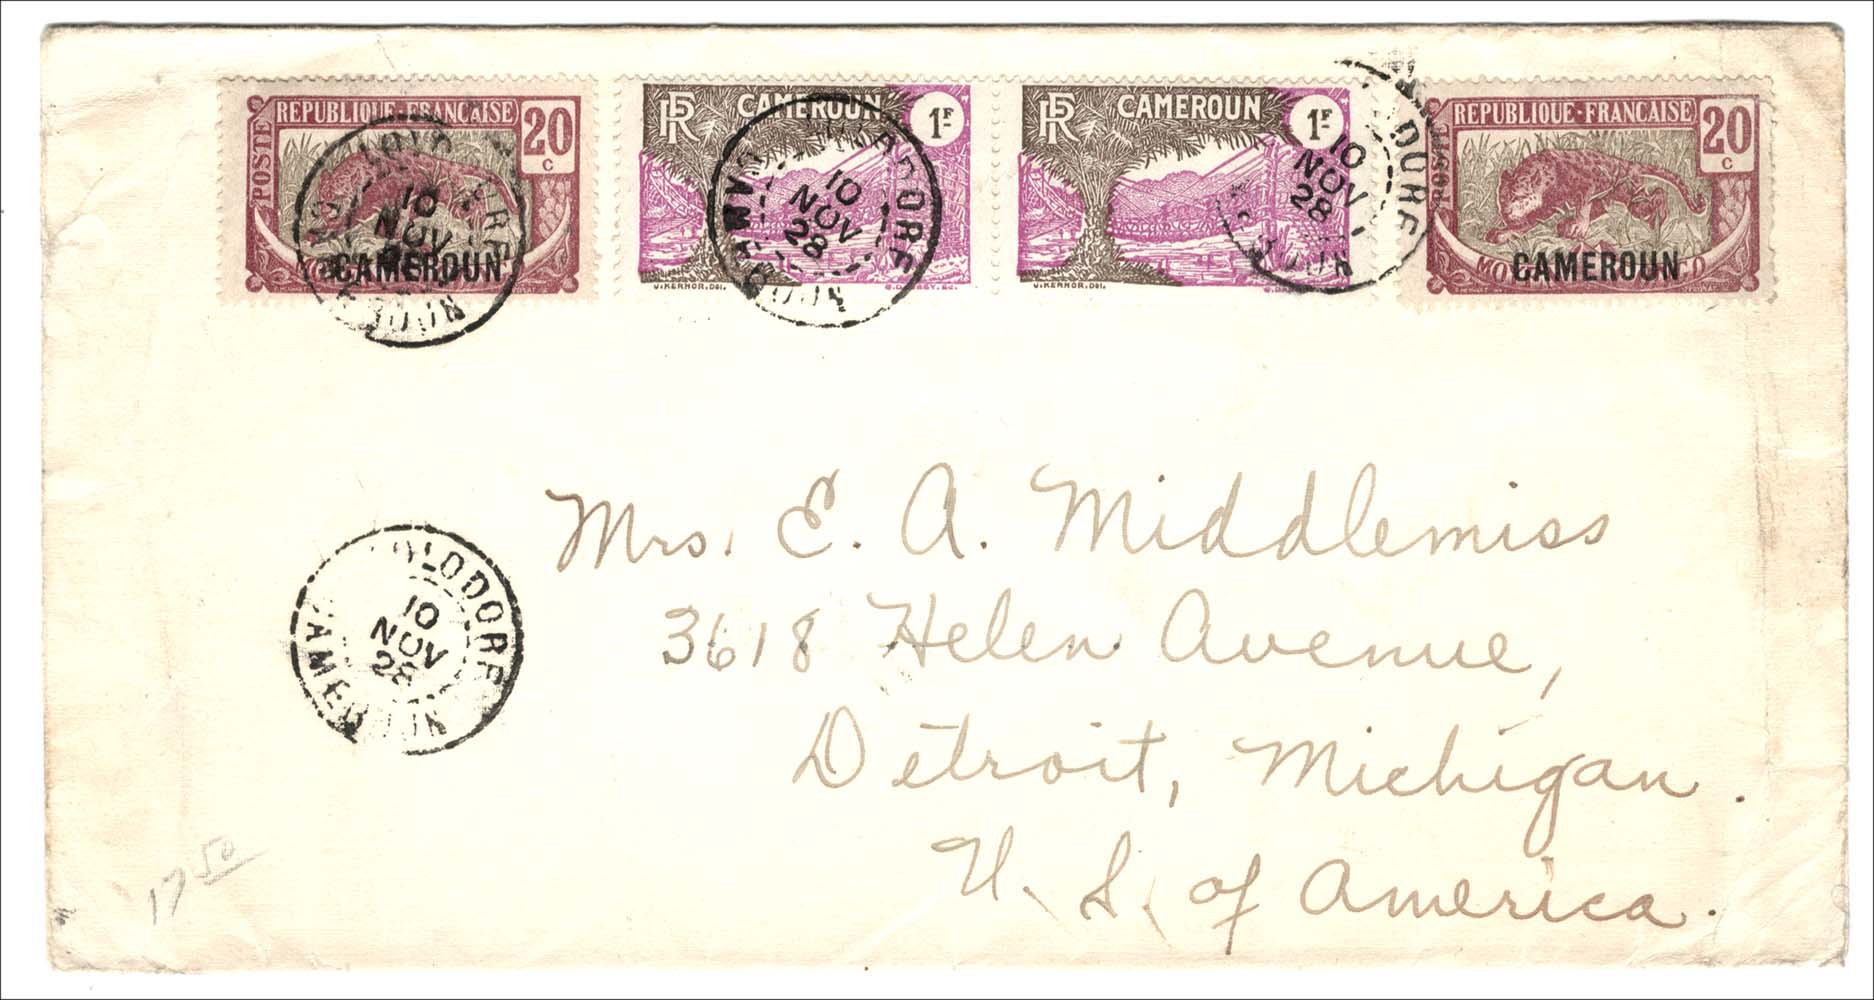 REPUBLIQUE-FRANÇAISE
20
C
POSTE
CAMEROUN
RF CAMEROUN
1F
J.KERHOR.DEL.
RF CAMEROUN
1F
J.KERHOR.DEL.
REPUBLIQUE-FRANÇAISE
20
C
POSTE
CAMEROUN
10
NOV
10
NOV
28
CAMEROUN
10
NOV
28
Mrs. E. A. Middlemiss
3618 Helen Avenue,
Detroit, Michigan.
U. S. of America.
10
NOV
28
CAMEROUN
17 50